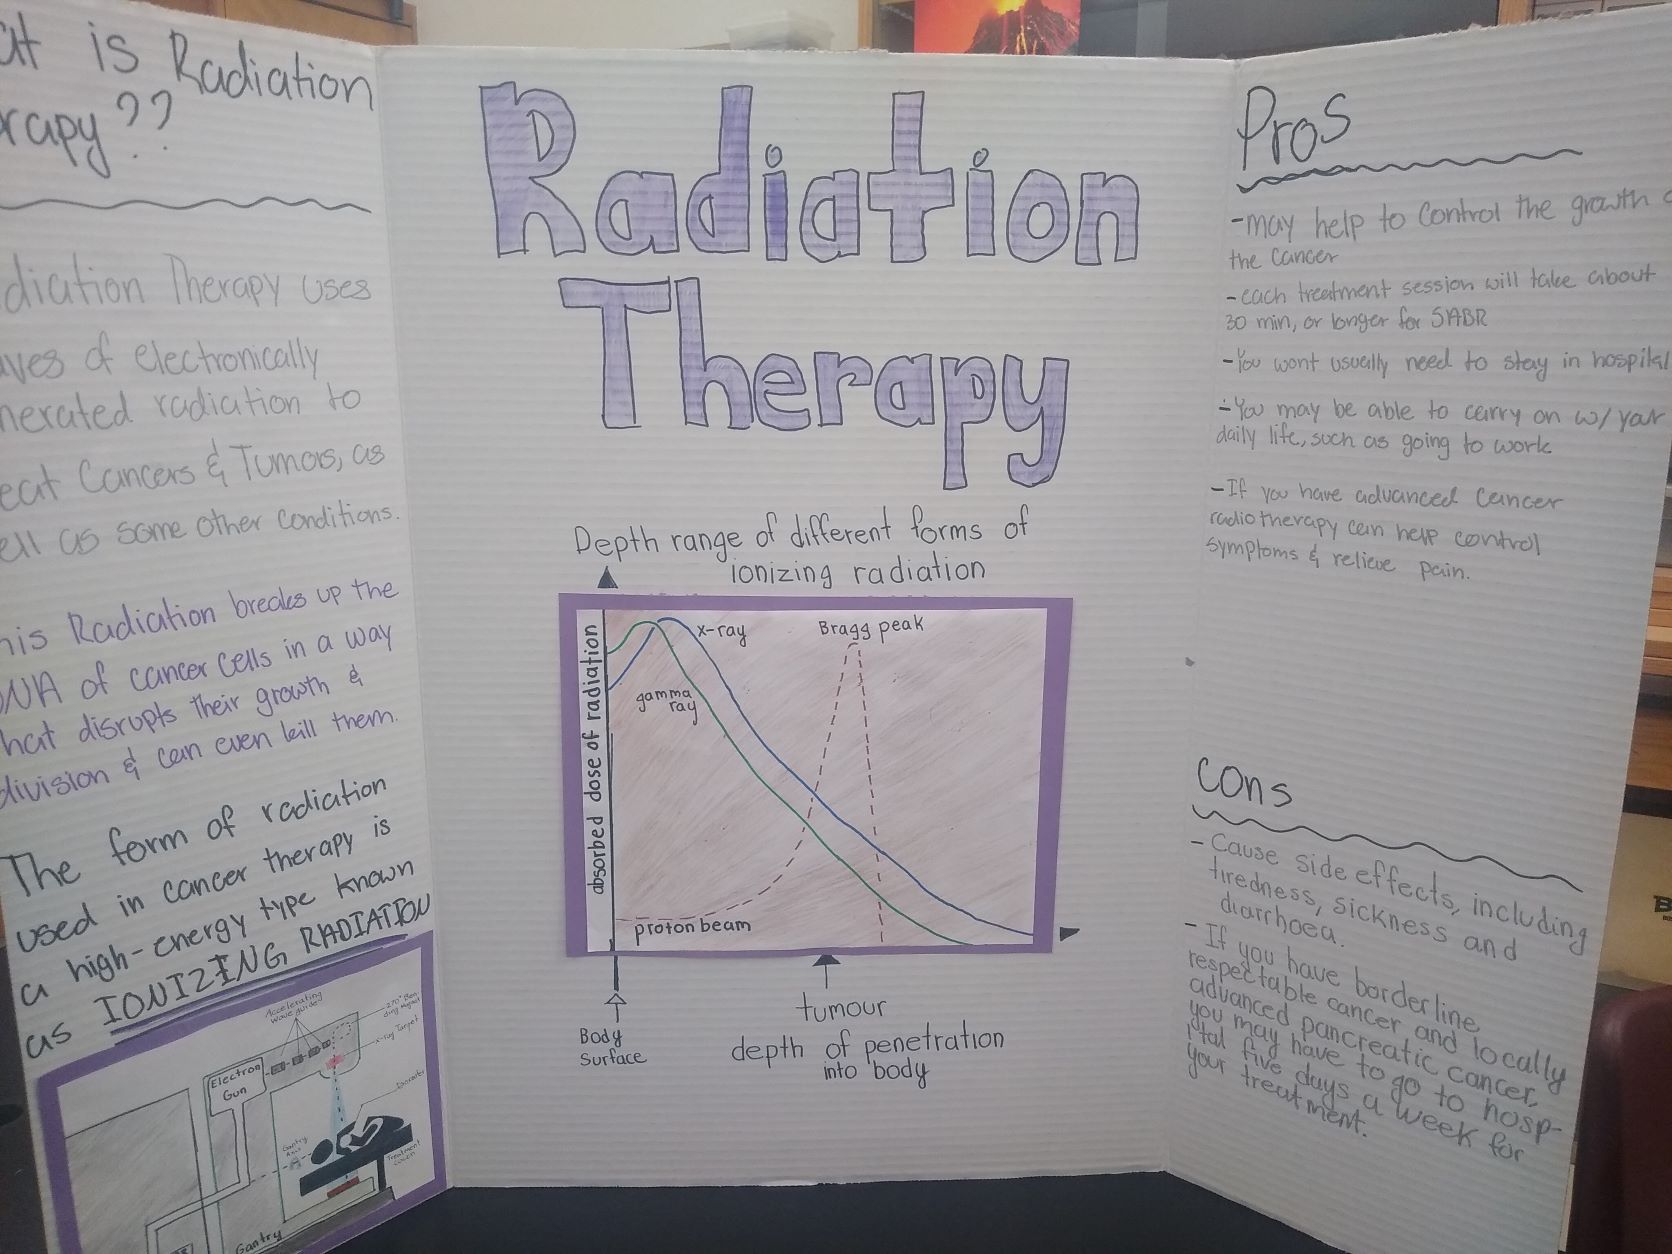 is Radiation
??
Therapy uses
of electronically
radiation to
Cancers & Tumors, as
as some other conditions.
Radiation breaks up the
of cancer cells in a way
disrupts their growth &
division & can even kill them.
The form of radiation
used in cancer therapy is
a high-energy type known
as IONIZING RADIATION
Accelerating
wave guide
270° Ben-
ding Magnet
x-ray Target
Electron
Gun
Gantry
Axis
Treatment
Gantry
Radiation
Therapy
Depth range of different forms of
ionizing radiation
absorbed dose of radiation
x-ray
Bragg peak
gamma
ray
proton beam
Body
Surface
tumour
depth of penetration
into body
Pros
-may help to control the growth
the cancer
-each treatment session will take about
30 min, or longer for SABR
-You wont usually need to stay in hospital
-You may be able to carry on w/ your
daily life, such as going to work
-If you have advanced cancer
radiotherapy can help control
symptoms & relieve pain.
Cons
-Cause side effects, including
tiredness, sickness and
diarrhoea.
-If you have borderline
respectable cancer and locally
advanced pancreatic cancer,
you may have to go to hosp-
ital five days a week for
your treatment.